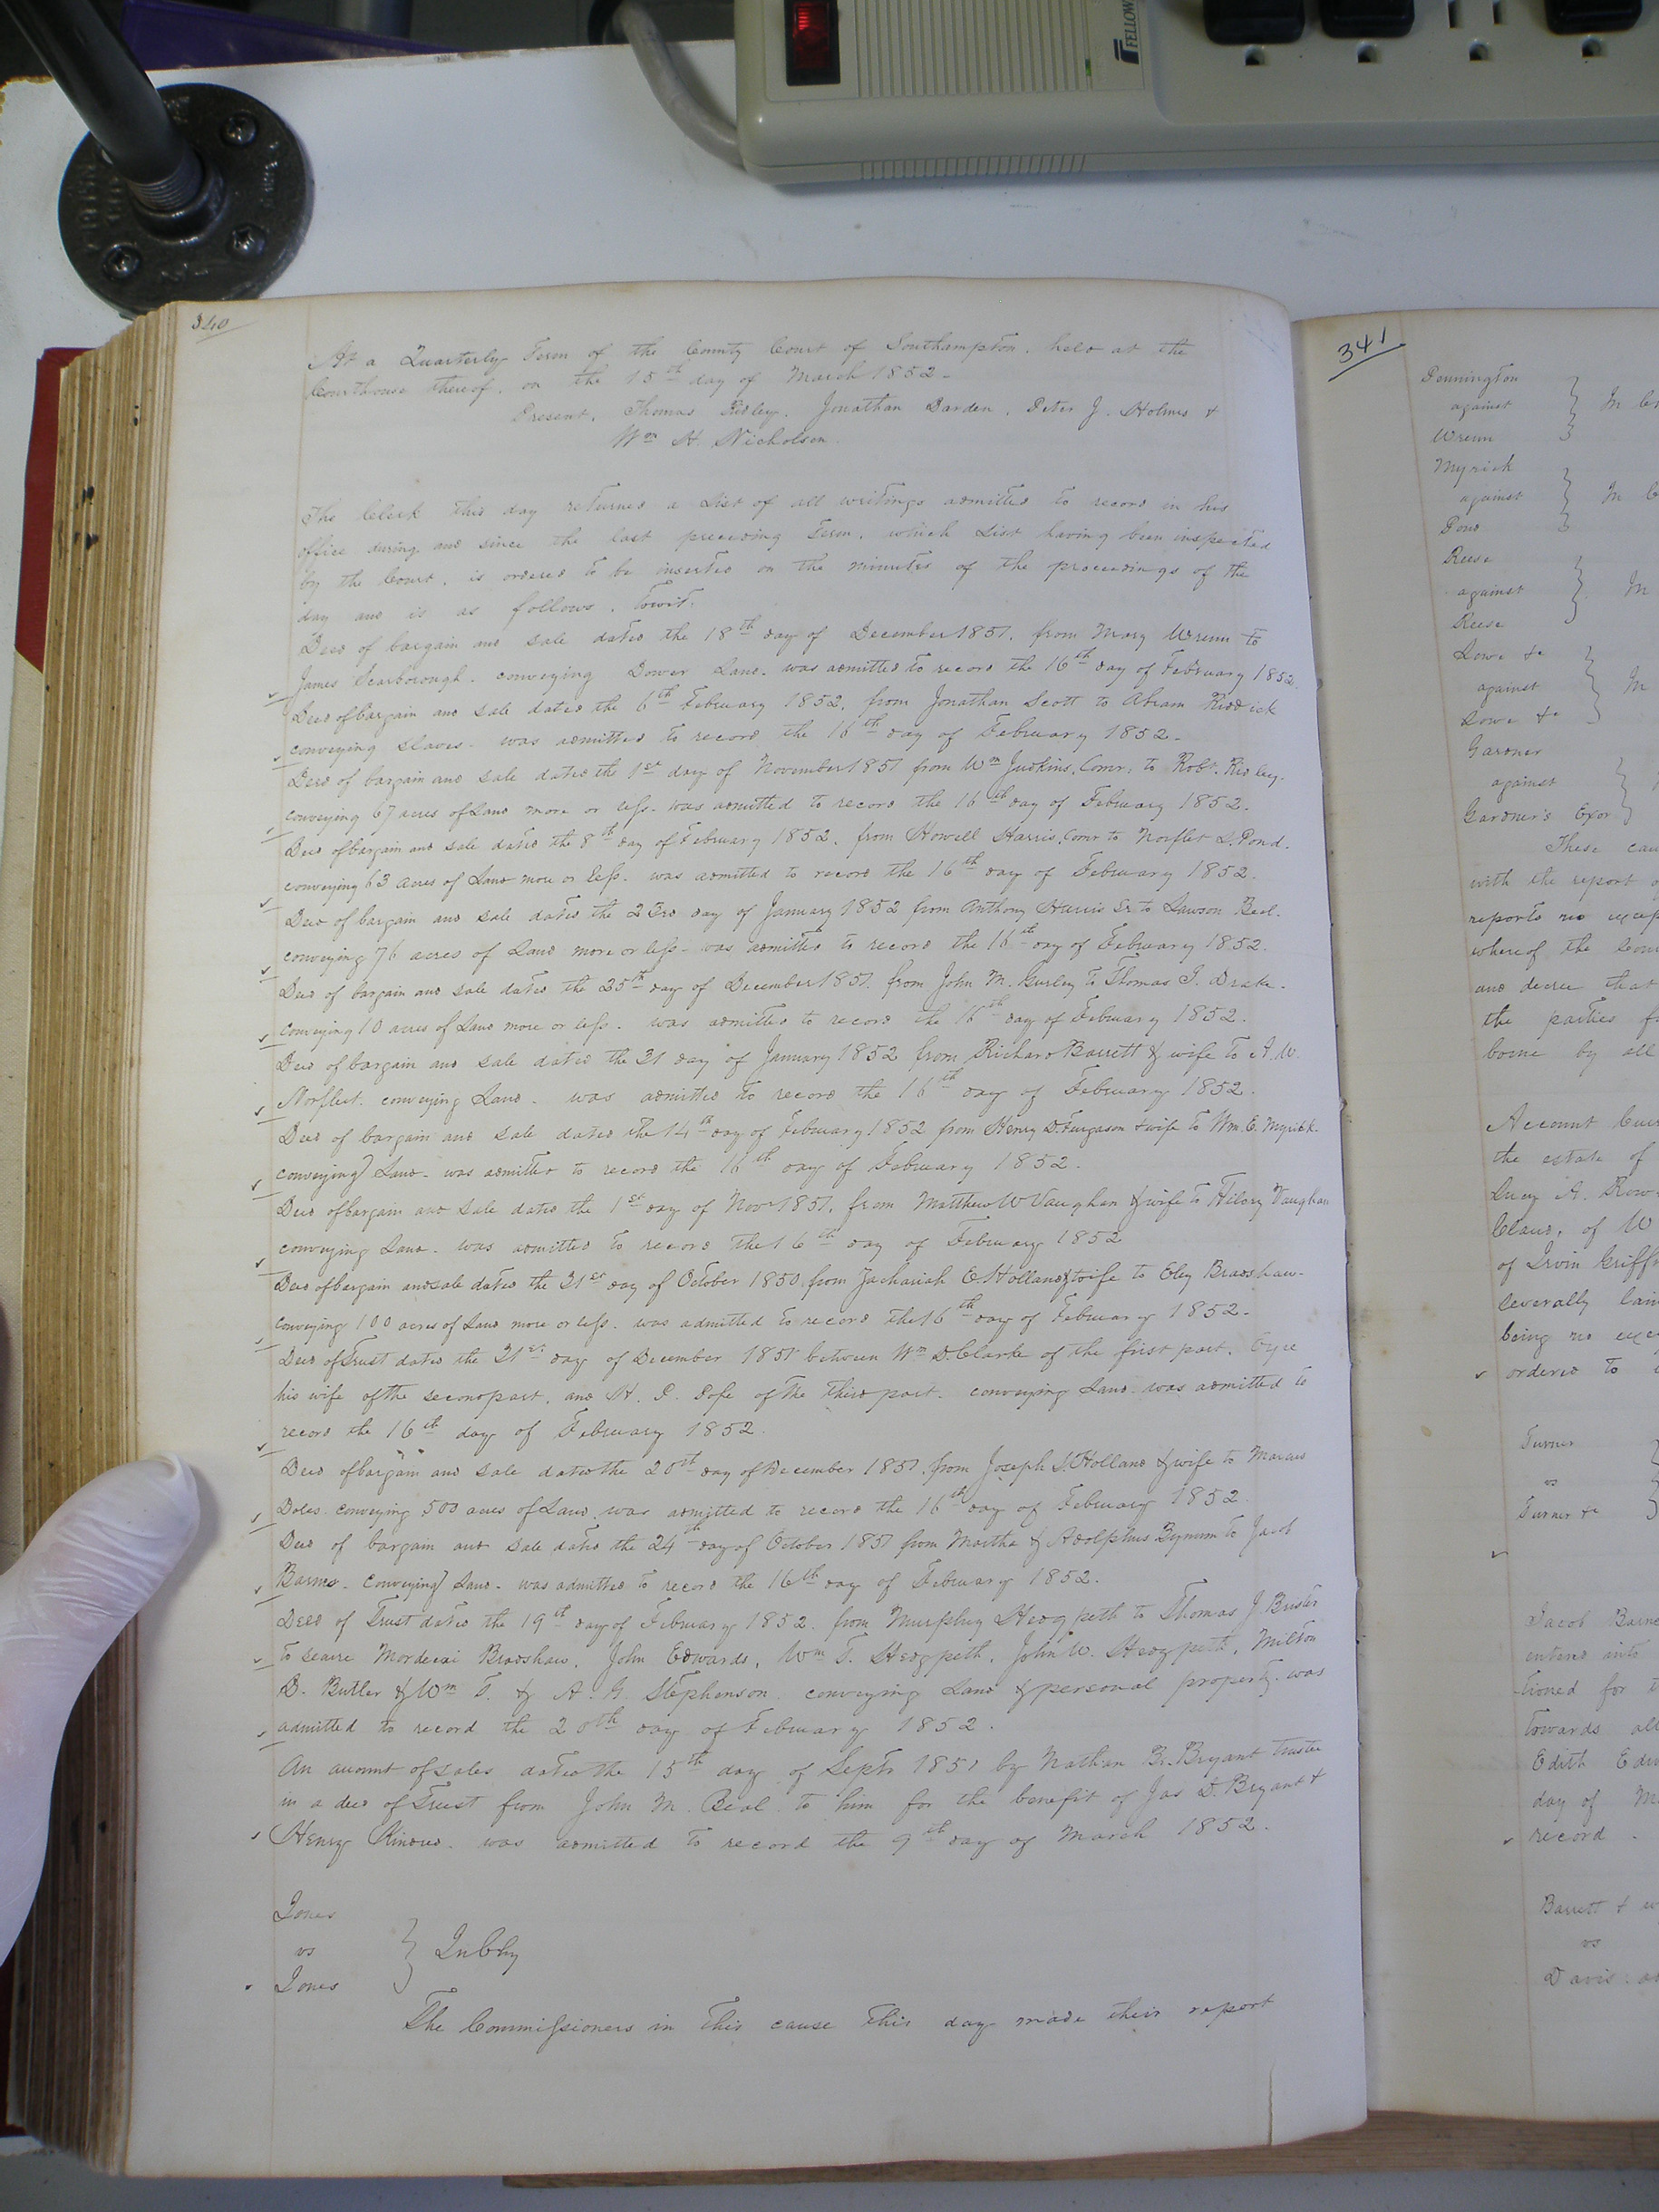 FELLOW
340
At a Quarterly Term of the County Court of Southampton, held at the
Courthouse thereof, on the 15th day of March 1852 -
Present, Thomas Ridley, Jonathan Darden, Peter J. Holmes &
Wm H. Nicholson.
The Clerk this day returned a List of all writings admitted to record in his
office during and since the last preceding Term, which List having been inspected
by the Court, is ordered to be inserted on the minutes of the proceedings of the
day and is as follows, Towit.
Deed of bargain and sale dated the 18th day of December 1851, from Mary Wrenn to
James Scarborough. conveying Dower Land. was admitted to record the 16th day of February 1852.
Deed of bargain and sale dated the 6th February 1852, from Jonathan Scott to Abram Riddick
conveying slaves. was admitted to record the 16th day of February 1852.
Deed of bargain and sale dated the 1st day of November 1851 from Wm Judkins, Comr, to Robt. Ridley.
conveying 67 acres of Land more or less. was admitted to record the 16th day of February 1852.
Deed of bargain and sale dated the 8th day of February 1852, from Howell Harris, Comr to Norflet S. Pond.
conveying 63 acres of Land more or less. was admitted to record the 16th day of February 1852.
Deed of bargain and sale dated the 23rd day of January 1852 from Anthony Harris Sr to Lawson Beal.
conveying 76 acres of Land more or less - was admitted to record the 16th day of February 1852.
Deed of bargain and sale dated the 25th day of December 1851 from John M. Gurley to Thomas J. Drake.
conveying 10 acres of Land more or less. was admitted to record the 16th day of February 1852.
Deed of bargain and sale dated the 31 day of January 1852 from Richard Barrett & wife to A.W.
Norfleet. conveying Land. was admitted to record the 16th day of February 1852.
Deed of bargain and sale dated the 14th day of February 1852 from Henry D. Furgason & wife to Wm. E. Myrick.
conveying Land. was admitted to record the 16th day of February 1852.
Deed of bargain and sale dated the 1st day of Novr 1851, from Matthew W Vaughan & wife to Hilory Vaughan
conveying Land. was admitted to record the 16th day of February 1852
Deed of bargain and sale dated the 31st day of October 1850, from Zachariah E Holland & wife to Eley Bradshaw.
conveying 100 acres of Land more or less. was admitted to record the 16th day of February 1852.
Deed of Trust dated the 31st day of December 1851 between Wm D. Clarke of the first part,
his wife of the second part, and H. P. Pope of the third part. conveying Land was admitted to
record the 16th day of February 1852.
Deed of bargain and sale dated the 20th day of December 1851, from Joseph S. Holland & wife to Marcus
Doles conveying 500 acres of Land was admitted to record the 16th day of February 1852
Deed of bargain and sale dated the 24th day of October 1851 from Martha & Adolphus Bynum to Jacob
Barnes. conveying Land. was admitted to record the 16th day of February 1852.
Deed of Trust dated the 19th day of February 1852. from Murphey Hedgpeth to Thomas J Bristor
to secure Mordecai Bradshaw, John Edwards, Wm T. Hedgpeth, John W. Hedgpeth, Milton
D. Butler & Wm T. & A. G. Stephenson conveying Land & personal property. was
admitted to record the 20th day of February 1852.
An amount of sales dated the 15th day of Septr 1851 by Nathan B. Bryant trustee
in a deed of Trust from John M. Beal to him for the benefit of Jas D. Bryant &
Henry was admitted to record the 9th day of March 1852.
Jones
vs
Jones
In Chy
The Commissioners in this cause this day made their report
341
Pennington
against
Wrenn
Myrick
against
Pond
Reese
against
Reese
Lowe &c
against
Lowe &c
Gardner
against
Gardner's Exor
These
with the report
reports no
whereof the
and decree that
the parties
borne by all
Account
the estate of
Lucy A.
of W
of Irvin
severally
being no
ordered to
Turner
vs
Turner &c
Jacob
entered into
tioned for
towards all
Edith
day of
record.
Barrett &
vs
Davis